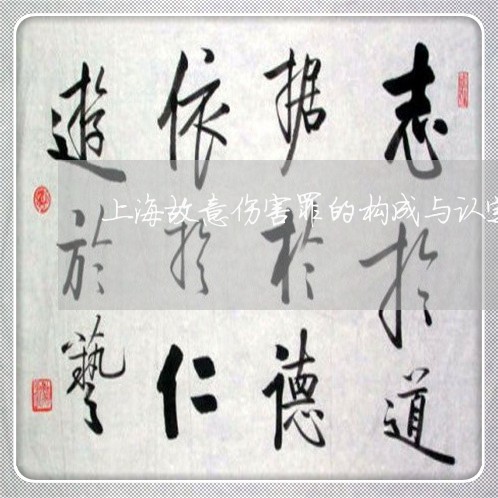 志於道
据於德
依於仁
遊於藝
上海故意伤害罪的构成与认